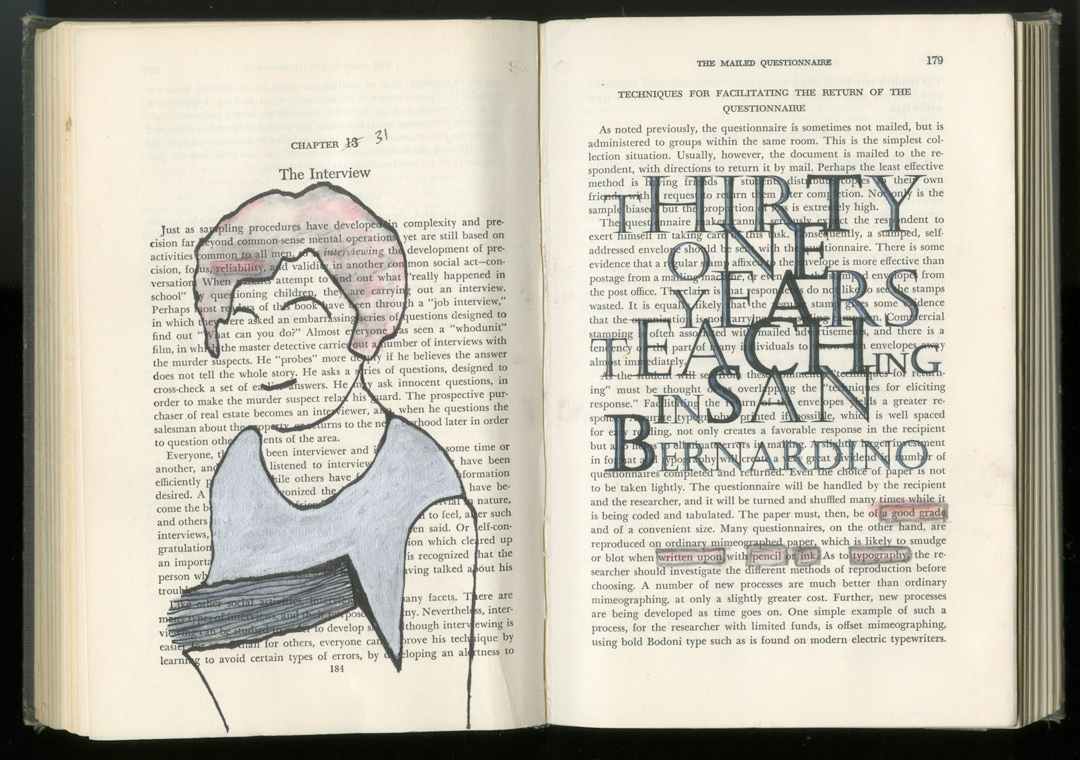 CHAPTER 13 31
The Interview
Just as sampling procedures have developed in complexity and pre-
cision far beyond common-sense mental operations yet are still based on
activities common to all men, interviewing the development of pre-
cision, focus, reliability, and validity in another common social act—con-
versation. When attempt to find out what really happened in
school" by questioning children, they are carrying out an interview.
Perhaps most readers of this book have been through a "job interview,"
in which they were asked an embarrassing series of questions designed to
find out "What can you do?" Almost everyone has seen a "whodunit"
film, in which the master detective carries out a number of interviews with
the murder suspects. He "probes" more deeply if he believes the answer
does not tell the whole story. He asks a series of questions, designed to
cross-check a set of earlier answers. He may ask innocent questions, in
order to make the murder suspect relax his guard. The prospective pur-
chaser of real estate becomes an interviewer, and when he questions the
salesman about the property returns to the neighborhood later in order
to question other residents of the area.
Everyone, been interviewer and some time or
another, and listened to interview have been
efficiently while others have information
desired. A recognized the have be-
come the nature,
and others to feel, after such
interviews, been said. Or self-con-
gratulation ion which cleared up
an importa is recognized that the
person wh having talked about his
troubl
Like other social activities, interview many facets. There are
many types of interviews, and their purpose many. Nevertheless, inter-
viewing can be studied to develop s though interviewing is
easier than for others, everyone can improve his technique by
learning to avoid certain types of errors, by developing an alertness to
184
THE MAILED QUESTIONNAIRE 179
TECHNIQUES FOR FACILITATING THE RETURN OF THE
QUESTIONNAIRE
As noted previously, the questionnaire is sometimes not mailed, but is
administered to groups within the same room. This is the simplest col-
lection situation. Usually, however, the document is mailed to the re-
spondent, with directions to return it by mail. Perhaps the least effective
method is having friends or students distribute copies to their own
friends with a request to return them after completion. Not only is the
sample biased, but the proportion is extremely high.
The questionnaire maker cannot seriously expect the respondent to
exert himself in taking care of this task. Consequently, a stamped, self-
addressed envelope should be sent with the questionnaire. There is some
evidence that a regular stamp affixed to the envelope is more effective than
postage from a machine, or even envelopes from
the post office. The claim is that respondents do not like to see the stamps
wasted. It is equally likely that the stamp gives some evidence
that the communication is not Commercial
stamping is often associated with mailed advertisements, and there is a
tendency on the part of many individuals to throw envelopes away
almost immediately.
As the student will see from these comments, "techniques for return-
ing" must be thought of as overlapping the "techniques for eliciting
response." Facilitating the return of the envelopes needs a greater re-
typography printed if possible, which is well spaced
for easy reading, not only creates a favorable response in the recipient
but also helps eliminate errors in marking. A slightly larger investment
in format and typography will create a greater number of
questionnaires completed and returned. Even the choice of paper is not
to be taken lightly. The questionnaire will be handled by the recipient
and the researcher, and it will be turned and shuffled many times while it
is being coded and tabulated. The paper must, then, be of a good grade
and of a convenient size. Many questionnaires, on the other hand, are
reproduced on ordinary mimeographed paper, which is likely to smudge
or blot when written upon with pencil or ink. As to typography, the re-
searcher should investigate the different methods of reproduction before
choosing. A number of new processes are much better than ordinary
mimeographing, at only a slightly greater cost. Further, new processes
are being developed as time goes on. One simple example of such a
process, for the researcher with limited funds, is offset mimeographing,
using bold Bodoni type such as is found on modern electric typewriters.
THIRTY
ONE
YEARS
TEACHING
IN SAN
BERNARDINO